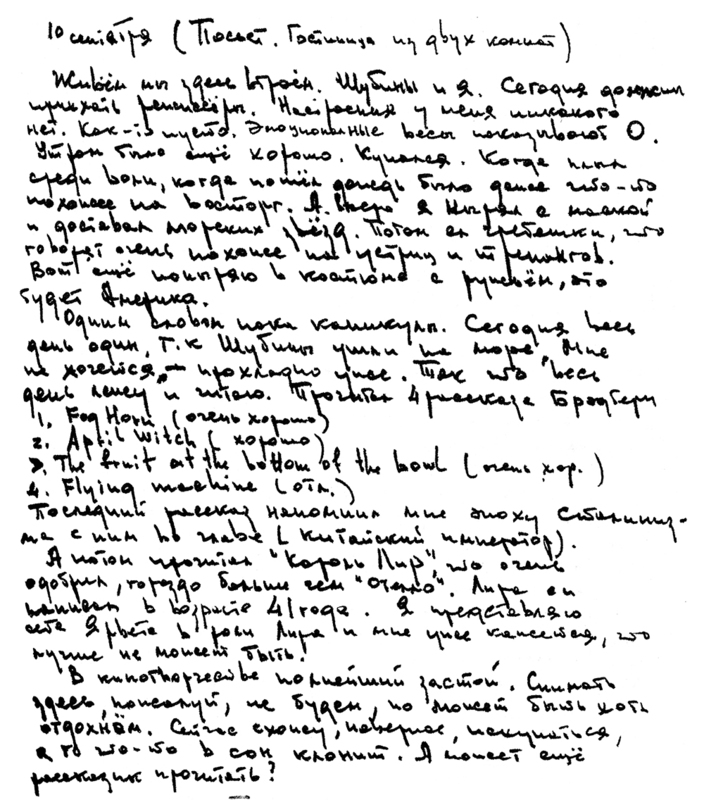 10 сентября (Посьет. Гостиница из двух комнат)
Живём мы здесь втроём. Шубины и я. Сегодня должны
приехать режиссёры. Настроения у меня никакого
нет. Как-то пусто. Эмоциональные весы показывают 0.
Утром было ещё хорошо. Купался. Когда плыл
среди волн, когда пошёл дождь было даже что-то
похожее на восторг. А вчера я нырял с маской
и доставал морских звёзд. Потом ел гребешки, что
говорят очень похоже на устриц и трепангов.
Вот ещё поныряю в костюме с ружьём, это
будет Америка.
Одним словом пока каникулы. Сегодня весь
день один, т.к Шубины ушли на море, мне
не хочется, – прохладно уже. Так что весь
день лежу и читаю. Прочитал 4 рассказа Брэдбери
1. Fog Horn (очень хорошо)
2. April Witch (хорошо)
3. The fruit at the bottom of the bowl (очень хор.)
4. Flying machine (отл.)
Последний рассказ напомнил мне эпоху Сталиниз-
ма с ним во главе (Китайский император).
А потом прочитал "Король Лир", что очень
одобрил, гораздо больше чем "Отелло". Лира он
написал в возрасте 41 года. Я представляю
себе Ярвета в роли Лира и мне уже кажется, что
лучше не может быть.
В кинотворчестве полнейший застой. Снимать
здесь, пожалуй, не будем, но может быть хоть
отдохнём. Сейчас схожу, наверное, искупаться,
а то что-то в сон клонит. А может ещё
рассказик прочитать?